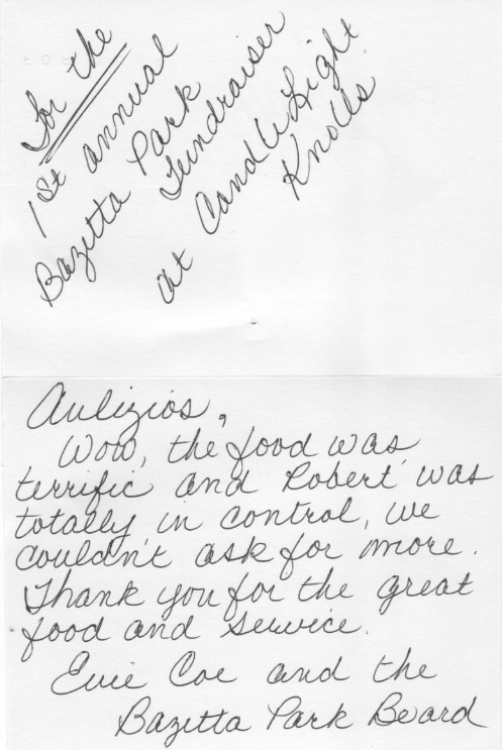 For the
1st annual
Bazetta Park
Fundraiser
at Candle Light
Knolls
Aulizios,
Wow, the food was
terrific and Robert was
totally in control, we
couldn't ask for more.
Thank you for the great
food and service.
Evie Coe and the
Bazetta Park Board